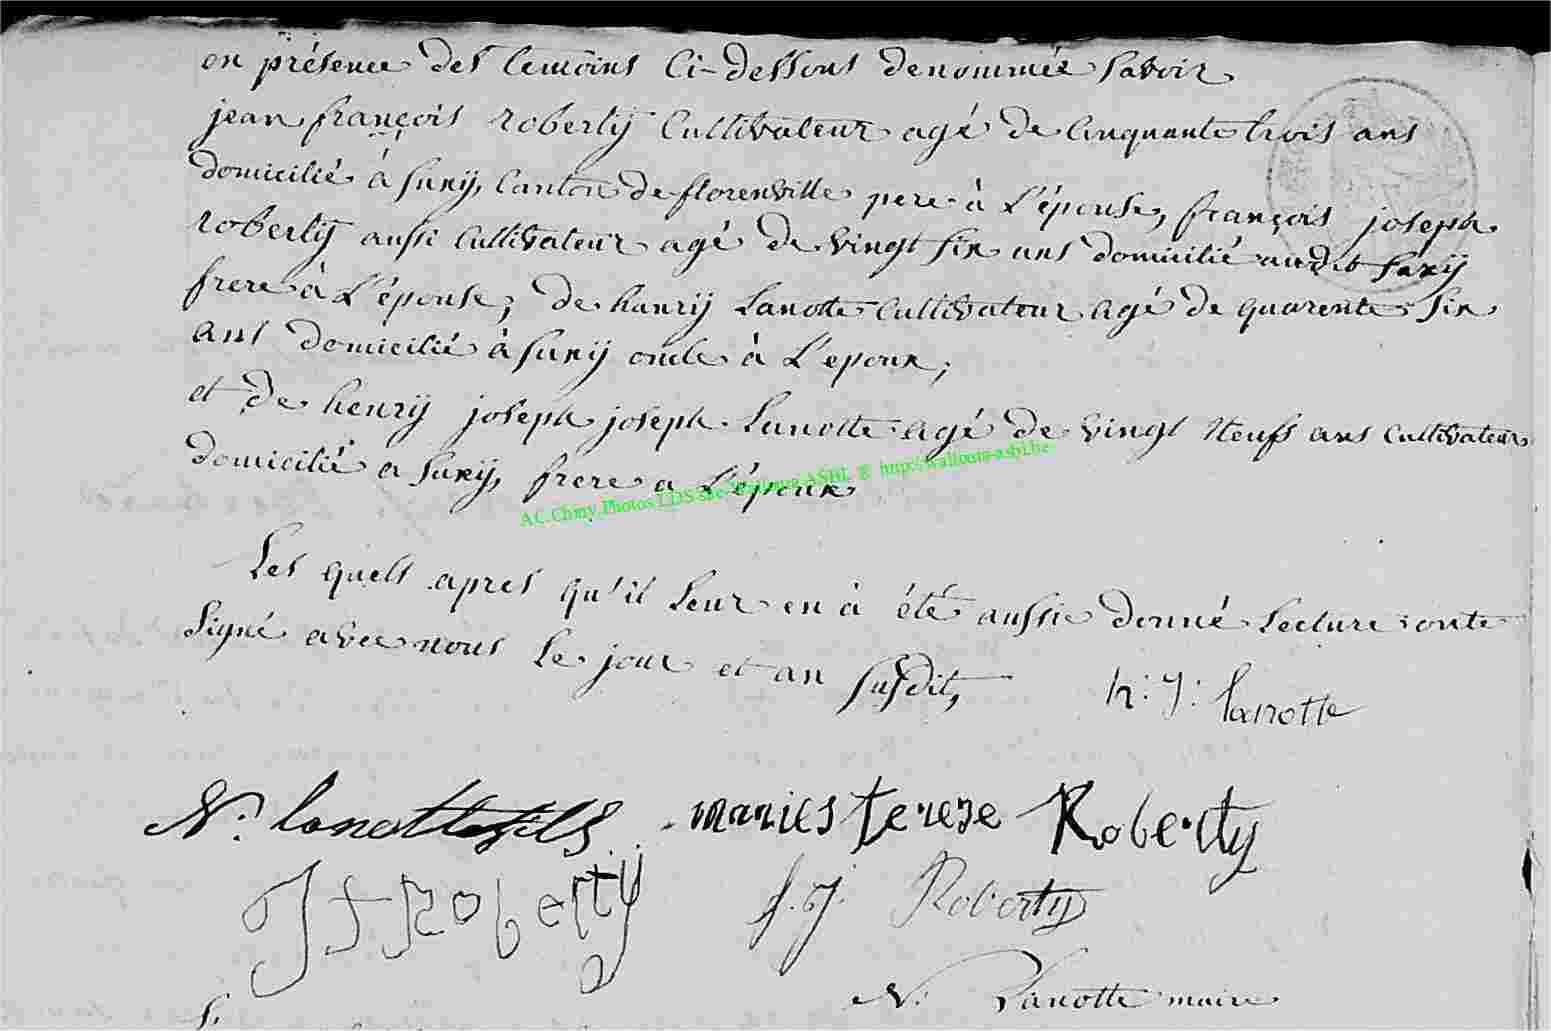 en présence des temoins Ci-dessous denommée savoir
jean françois roberty Cultivateur agé de Cinquante trois ans
domicilié à Suxÿ, Canton de florenville pere à L'épouse, françois joseph
robertÿ aussi Cultivateur agé de vingt six ans domicilié audit Suxÿ
frere à L'épouse, de hanrÿ Lanotte Cultivateur agé de quarente six
ans domicilié à Suxÿ oncle à L'epoux,
et de henrÿ joseph joseph Lanotte agé de vingt neufs ans Cultivateur
domicilié a Suxÿ, frere a L'époux
AC.Chiny Photos LDS site Wallonia ASBL © http://wallonia-asbl.be
Les quels apres qu'il leur en à été aussie donné Lecture onte
Signé avec nous Le jour et an susdit,
h: J: lanotte
N: lanotte fils
maries terese Roberty
J f Robertÿ
f. J. Roberty
N. Lanotte maire